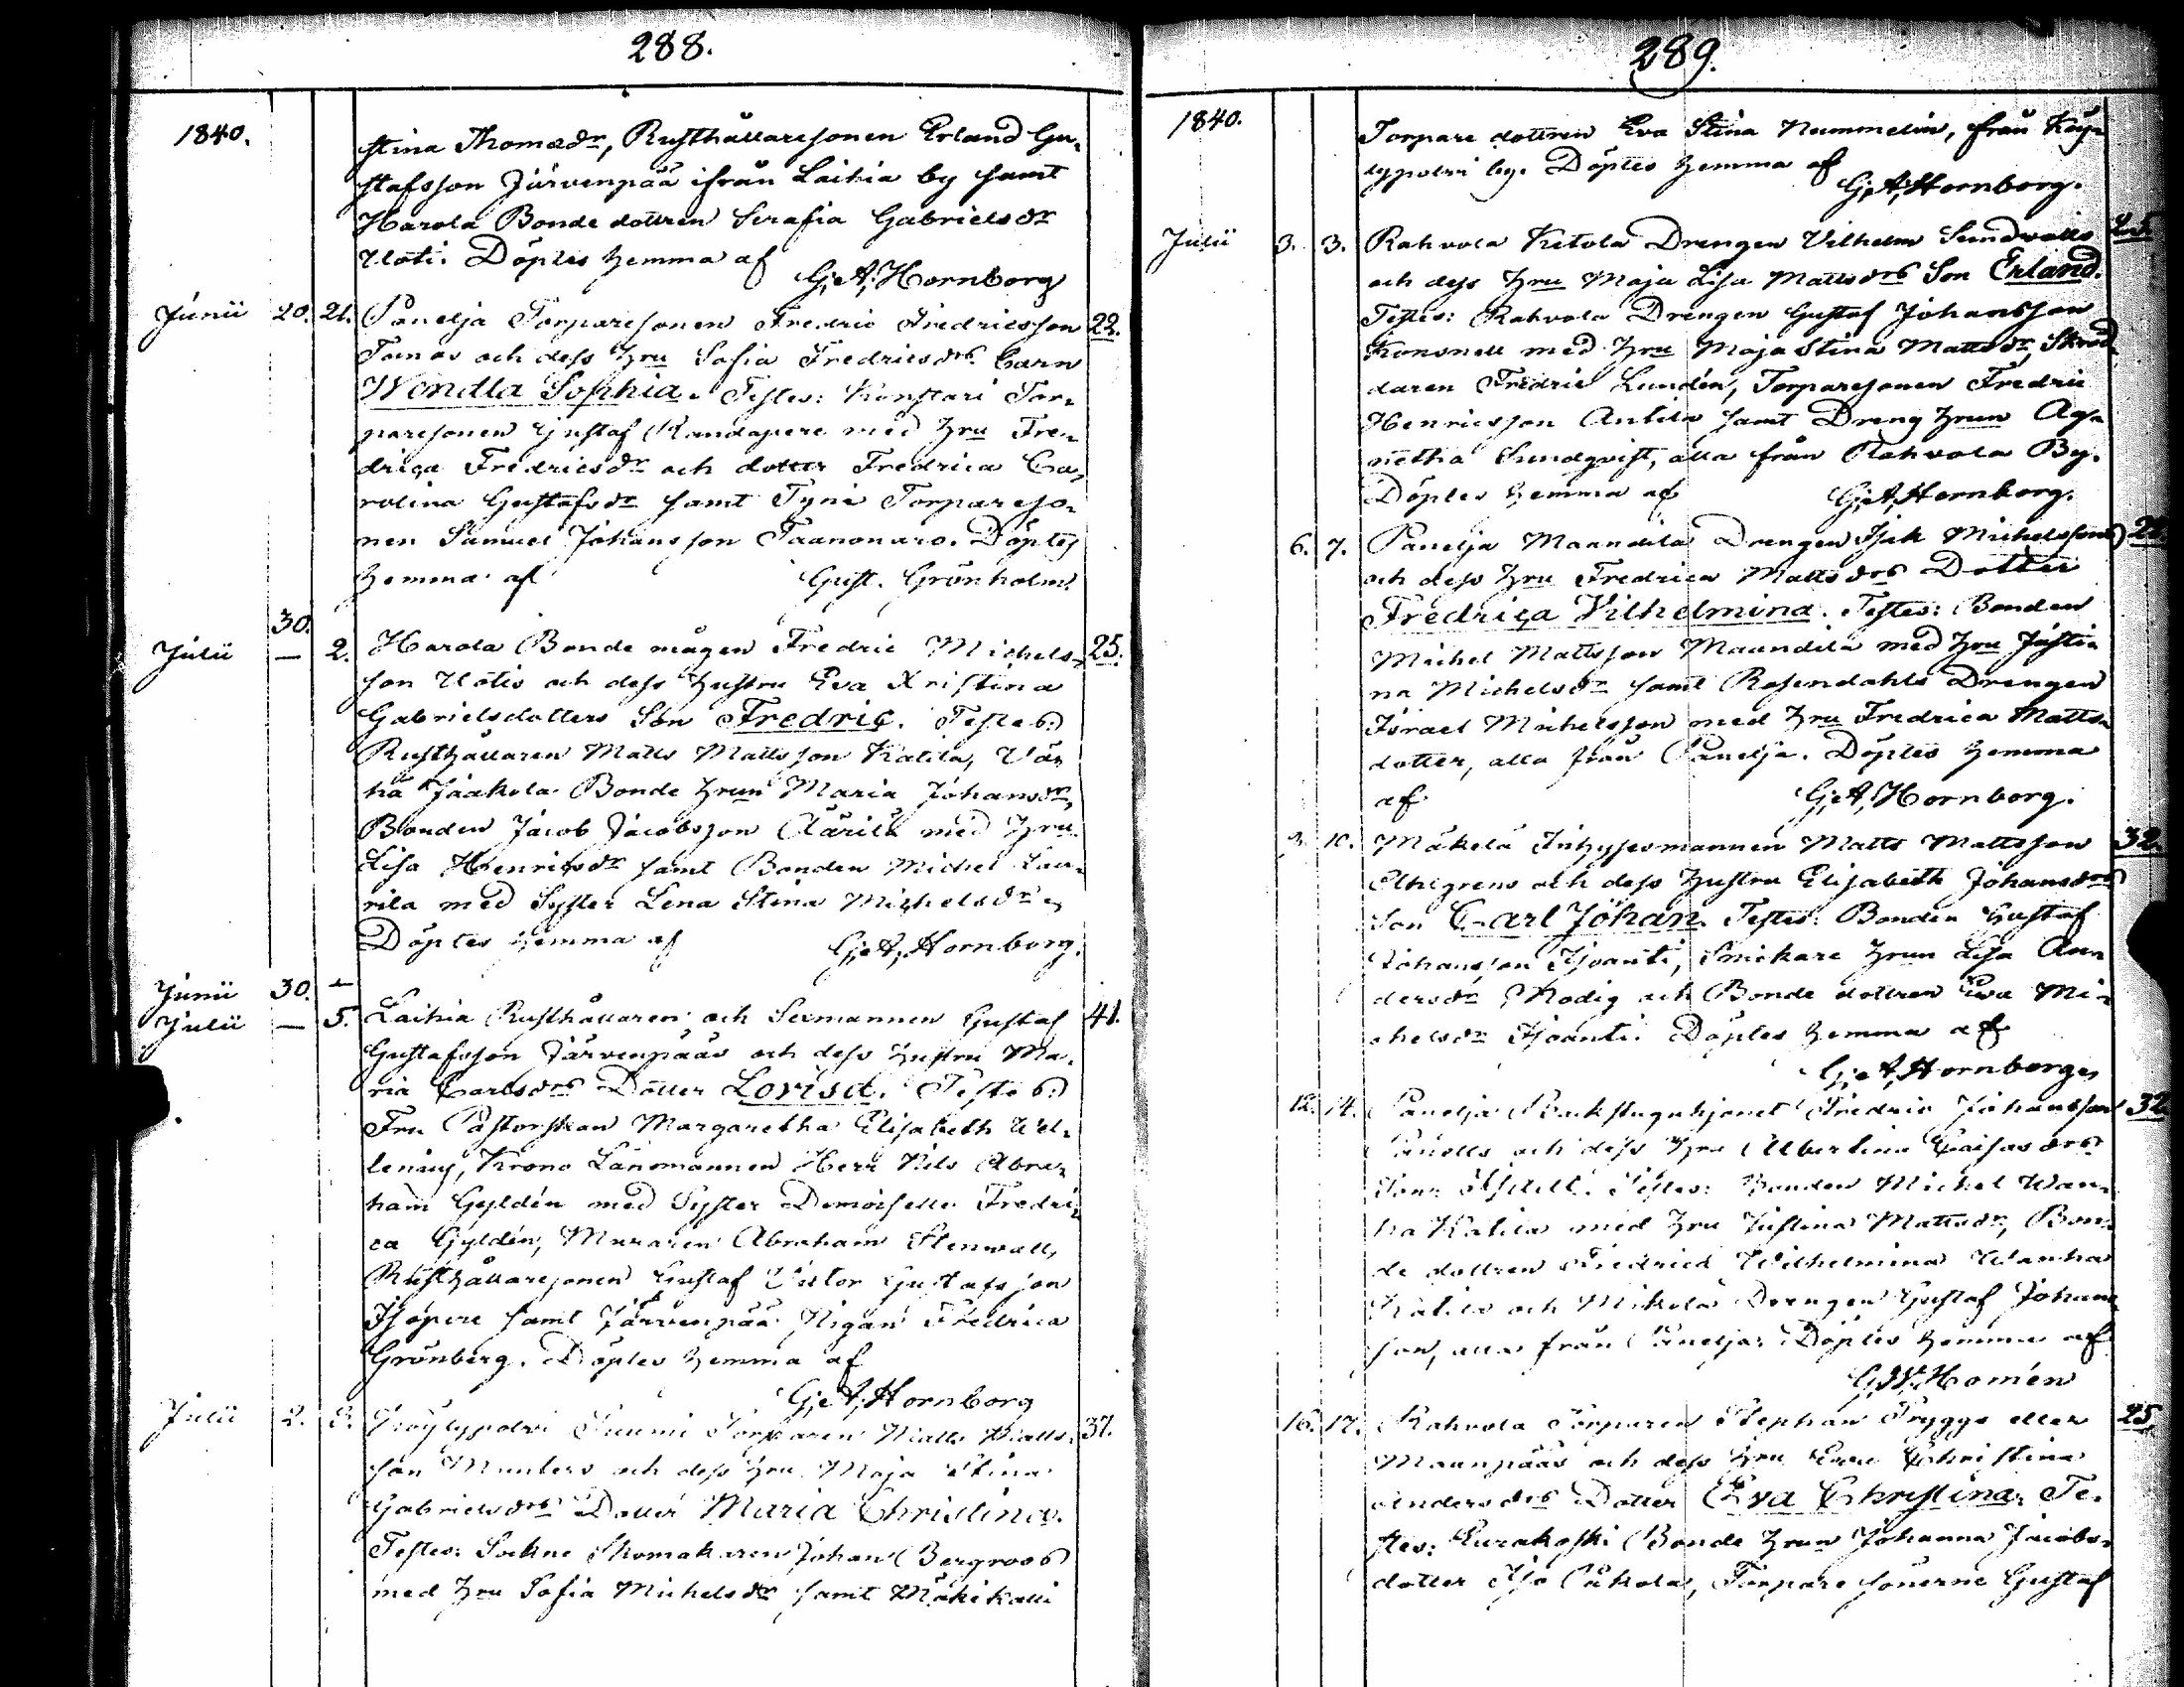 288.
1840.
stina Thomasdr, Rusthållaresonen Erland Gu-
stafsson Järvenpää ifrån Laihia by samt
Harola Bonde dottren Serafia Gabrielsdr
Uoti. Döptes hemma af
G; A; Hornborg
Junii 20. 21. Panelja Torparesonen Fredric Fredricsson 22.
och dess hru Sofia Fredricsdrs barn
Wendla Sophia. Testes: Konstari Tor-
paresonen Gustaf Randapere med hru Fre-
drica Fredricsdr och dotter Fredrica Ca-
rolina Gustafsdr samt Tyni Torpareso-
nen Samuel Johansson Taanonaro. Döptes
hemma af Gust. Grönholm.
30.
Julii — 2. Harola Bonde mågen Fredric Michels- 25.
son Uotis och dess hustru Eva Kristina
Gabrielsdotters Son Fredric. Testes:
Rusthållaren Matts Mattsson Katila, Van
ha Jaakola Bonde hrun Maria Johansdr,
Bonden Jacob Jacobsson Äärilä med hru
Lisa Henricsdr samt Bonden Michel Lau-
rila med Syster Lena Stina Michelsdr.
Döptes hemma af G; A; Hornborg.
Junii 30.
Julii — 5. Laihia Rusthållaren och Sexmannen Gustaf 41.
Gustafsson Järvenpääs och dess hustru Ma-
ria Carlsdrs Dotter Lovisa. Testes:
Fru Pastorskan Margaretha Elisabeth Wel-
lenius, Krono Länsmannen Herr Nils Abra-
ham Gyldén med Syster Demoiselle Fredri-
ca Gyldén, Muraren Abraham Stenwall,
Rusthållaresonen Gustaf Victor Gustafsson
Isopere samt Järvenpää Pigan Fredrica
Grönberg. Döptes hemma af
G; A; Hornborg
Julii 2. 3. Köylypolvi Suumi Torparen Matts Matts- 37.
son Munters och dess hru Maja Stina
Gabrielsdrs Dotter Maria Christina.
Testes: Sockne Skomakaren Johan Bergroos
med hru Sofia Michelsdr samt Mäkikalli
289.
1840.
Torpare dottren Eva Stina Nummelin, från Köy-
lypolvi by. Döptes hemma af
G; A; Hornborg.
Julii 3. 3. Rahvola Ketola Drengen Vilhelm Sundvalls 25.
och dess hru Maja Lisa Mattsdrs Son Erland.
Testes: Rahvola Drengen Gustaf Johansson
med hru Maja Stina Mattsdr, Skräd-
daren Fredric Lundén, Torparesonen Fredric
Henricsson Antila samt Dreng hrun Aga
netha Sundqvist, alla från Rahvola By.
Döptes hemma af G; A; Hornborg.
6. 7. Panelja Maandila Drengen Isak Michelssons
och dess hru Fredrica Mattsdrs Dotter
Fredrica Vilhelmina. Testes: Bonden
Michel Mattsson Maundila med hru Justi-
na Michelsdr samt Rosendahls Drengen
Israel Michelsson med hru Fredrica Matts-
dotter, alla från Panelja. Döptes hemma
af G; A; Hornborg.
9. 10. Mäkelä Inhysesmannen Matts Mattsson 32.
Elhigrens och dess hustru Elisabeth Johansdrs
Son Carl Johan. Testes: Bonden Gustaf
Johansson Isoanti, Snickare hrun Lisa An-
dersdr Rodig och Bonde dottren Eva Mi-
chelsdr Isoanti. Döptes hemma af
G; A; Hornborg
12. 14. Panelja Backstuguhjonet Fredric Johansson 32
och dess hru Albertina Caisasdrs
Son Testes: Bonden Michel Wan-
ha Katila med hru Justina Mattsdr, Bon-
de dottren Fredrica Wilhelmina Wanha
Katila och Mikola Drengen Gustaf Johans-
son, alla från Panelja. Döptes hemma af
G; W; Homén
16. 17. Rahvola Torparen Stephan Trygge eller 25.
Maanpääs och dess hru Eva Christina
Andersdrs Dotter Eva Christina. Te-
stes: Eurakoski Bonde hrun Johanna Jacobs-
dotter Iso Päkola, Torpare sönerne Gustaf